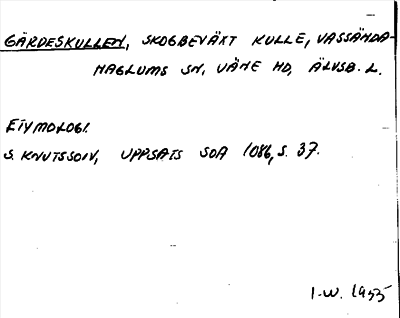 GÄRDESKULLEN, SKOGBEVÄXT KULLE, VASSÄNDA-
NAGLUMS SN, VÄNE HD, ÄLVSB. L.
ETYMOLOGI.
S. KNUTSSON, UPPSATS SOA 1086, S. 37.
I-W. 1955